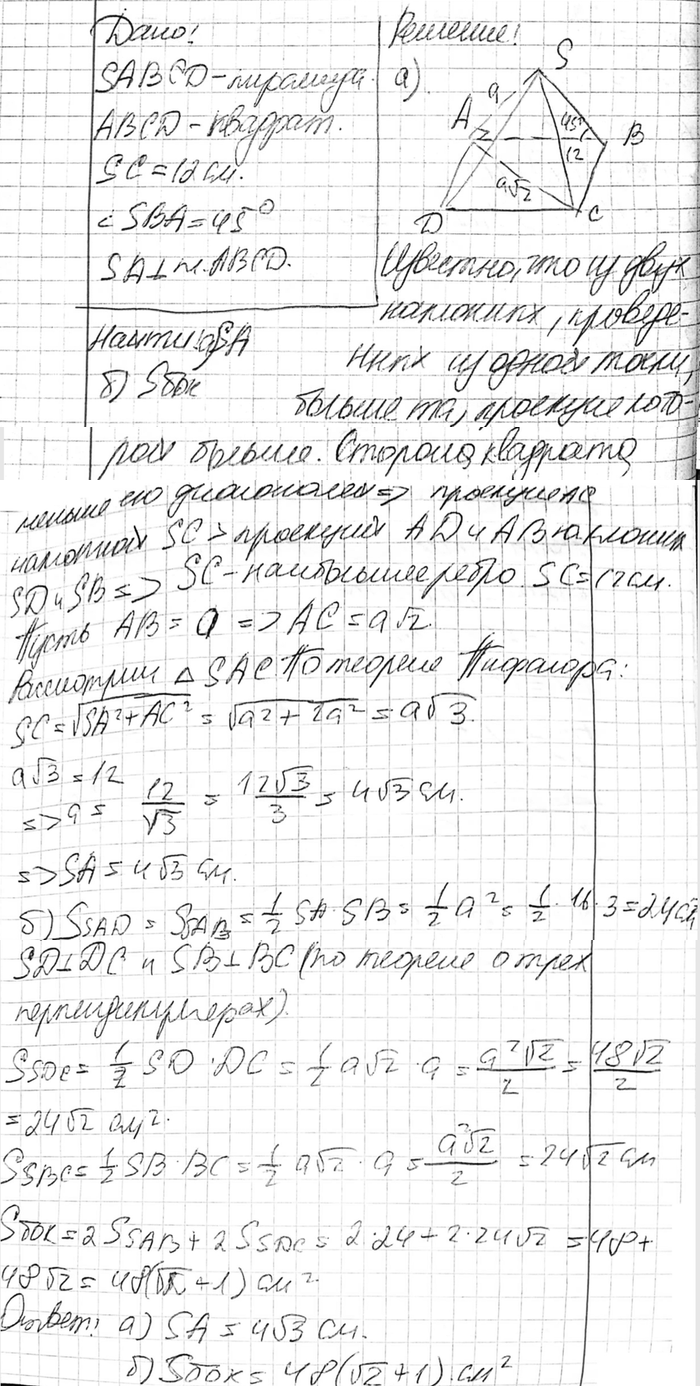 Дано:
SABCD - пирамида.
ABCD - квадрат.
SC = 12 см.
∠SBA = 45°
SA ⊥ пл. ABCD.
Найти: а) SA
б) Sбок
Решение:
а)
S
a
A
45°
B
12
a√2
D
C
Известно, что из двух
наклонных, проведе-
нных из одной точки,
больше та, проекция кото-
рой больше. Сторона квадрата
меньше его диагоналей => проекция АС
наклонной SC > проекций AD и AB наклонных
SD и SB => SC - наибольшее ребро. SC = 12 см.
Пусть AB = a => AC = a√2.
Рассмотрим △ SAC. По теореме Пифагора:
SC = √SA² + AC² = √a² + 2a² = a√3.
a√3 = 12
=> a = 12/√3 = 12√3/3 = 4√3 см.
=> SA = 4√3 см.
б) SSAD = SSAB = 1/2 SA · SB = 1/2 a² = 1/2 · 16 · 3 = 24 см
SD ⊥ DC и SB ⊥ BC (по теореме о трех
перпендикулярах).
SSDC = 1/2 SD · DC = 1/2 a√2 · a = a²√2/2 = 48√2/2
= 24√2 см².
SSBC = 1/2 SB · BC = 1/2 a√2 · a = a²√2/2 = 24√2 см
Sбок = 2SSAB + 2SSDC = 2·24 + 2·24√2 = 48 +
48√2 = 48(√2 + 1) см².
Ответ: а) SA = 4√3 см.
б) Sбок = 48(√2 + 1) см²